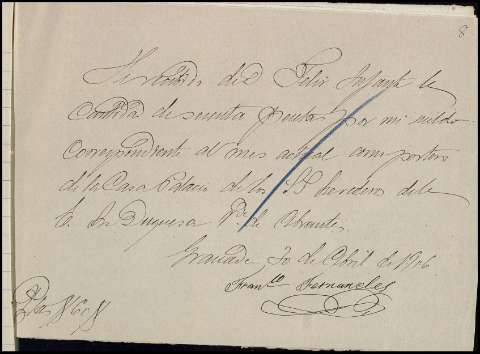 8
He recibido de D. Felix Infante la
cantidad de sesenta pesetas por mi sueldo
correspondiente al mes actual como portero
de la Casa Palacio de los SS herederos de la
E. Sra Duquesa Vda de Abrantes.
Granada 30 de Abril de 1906
Franco Fernandez